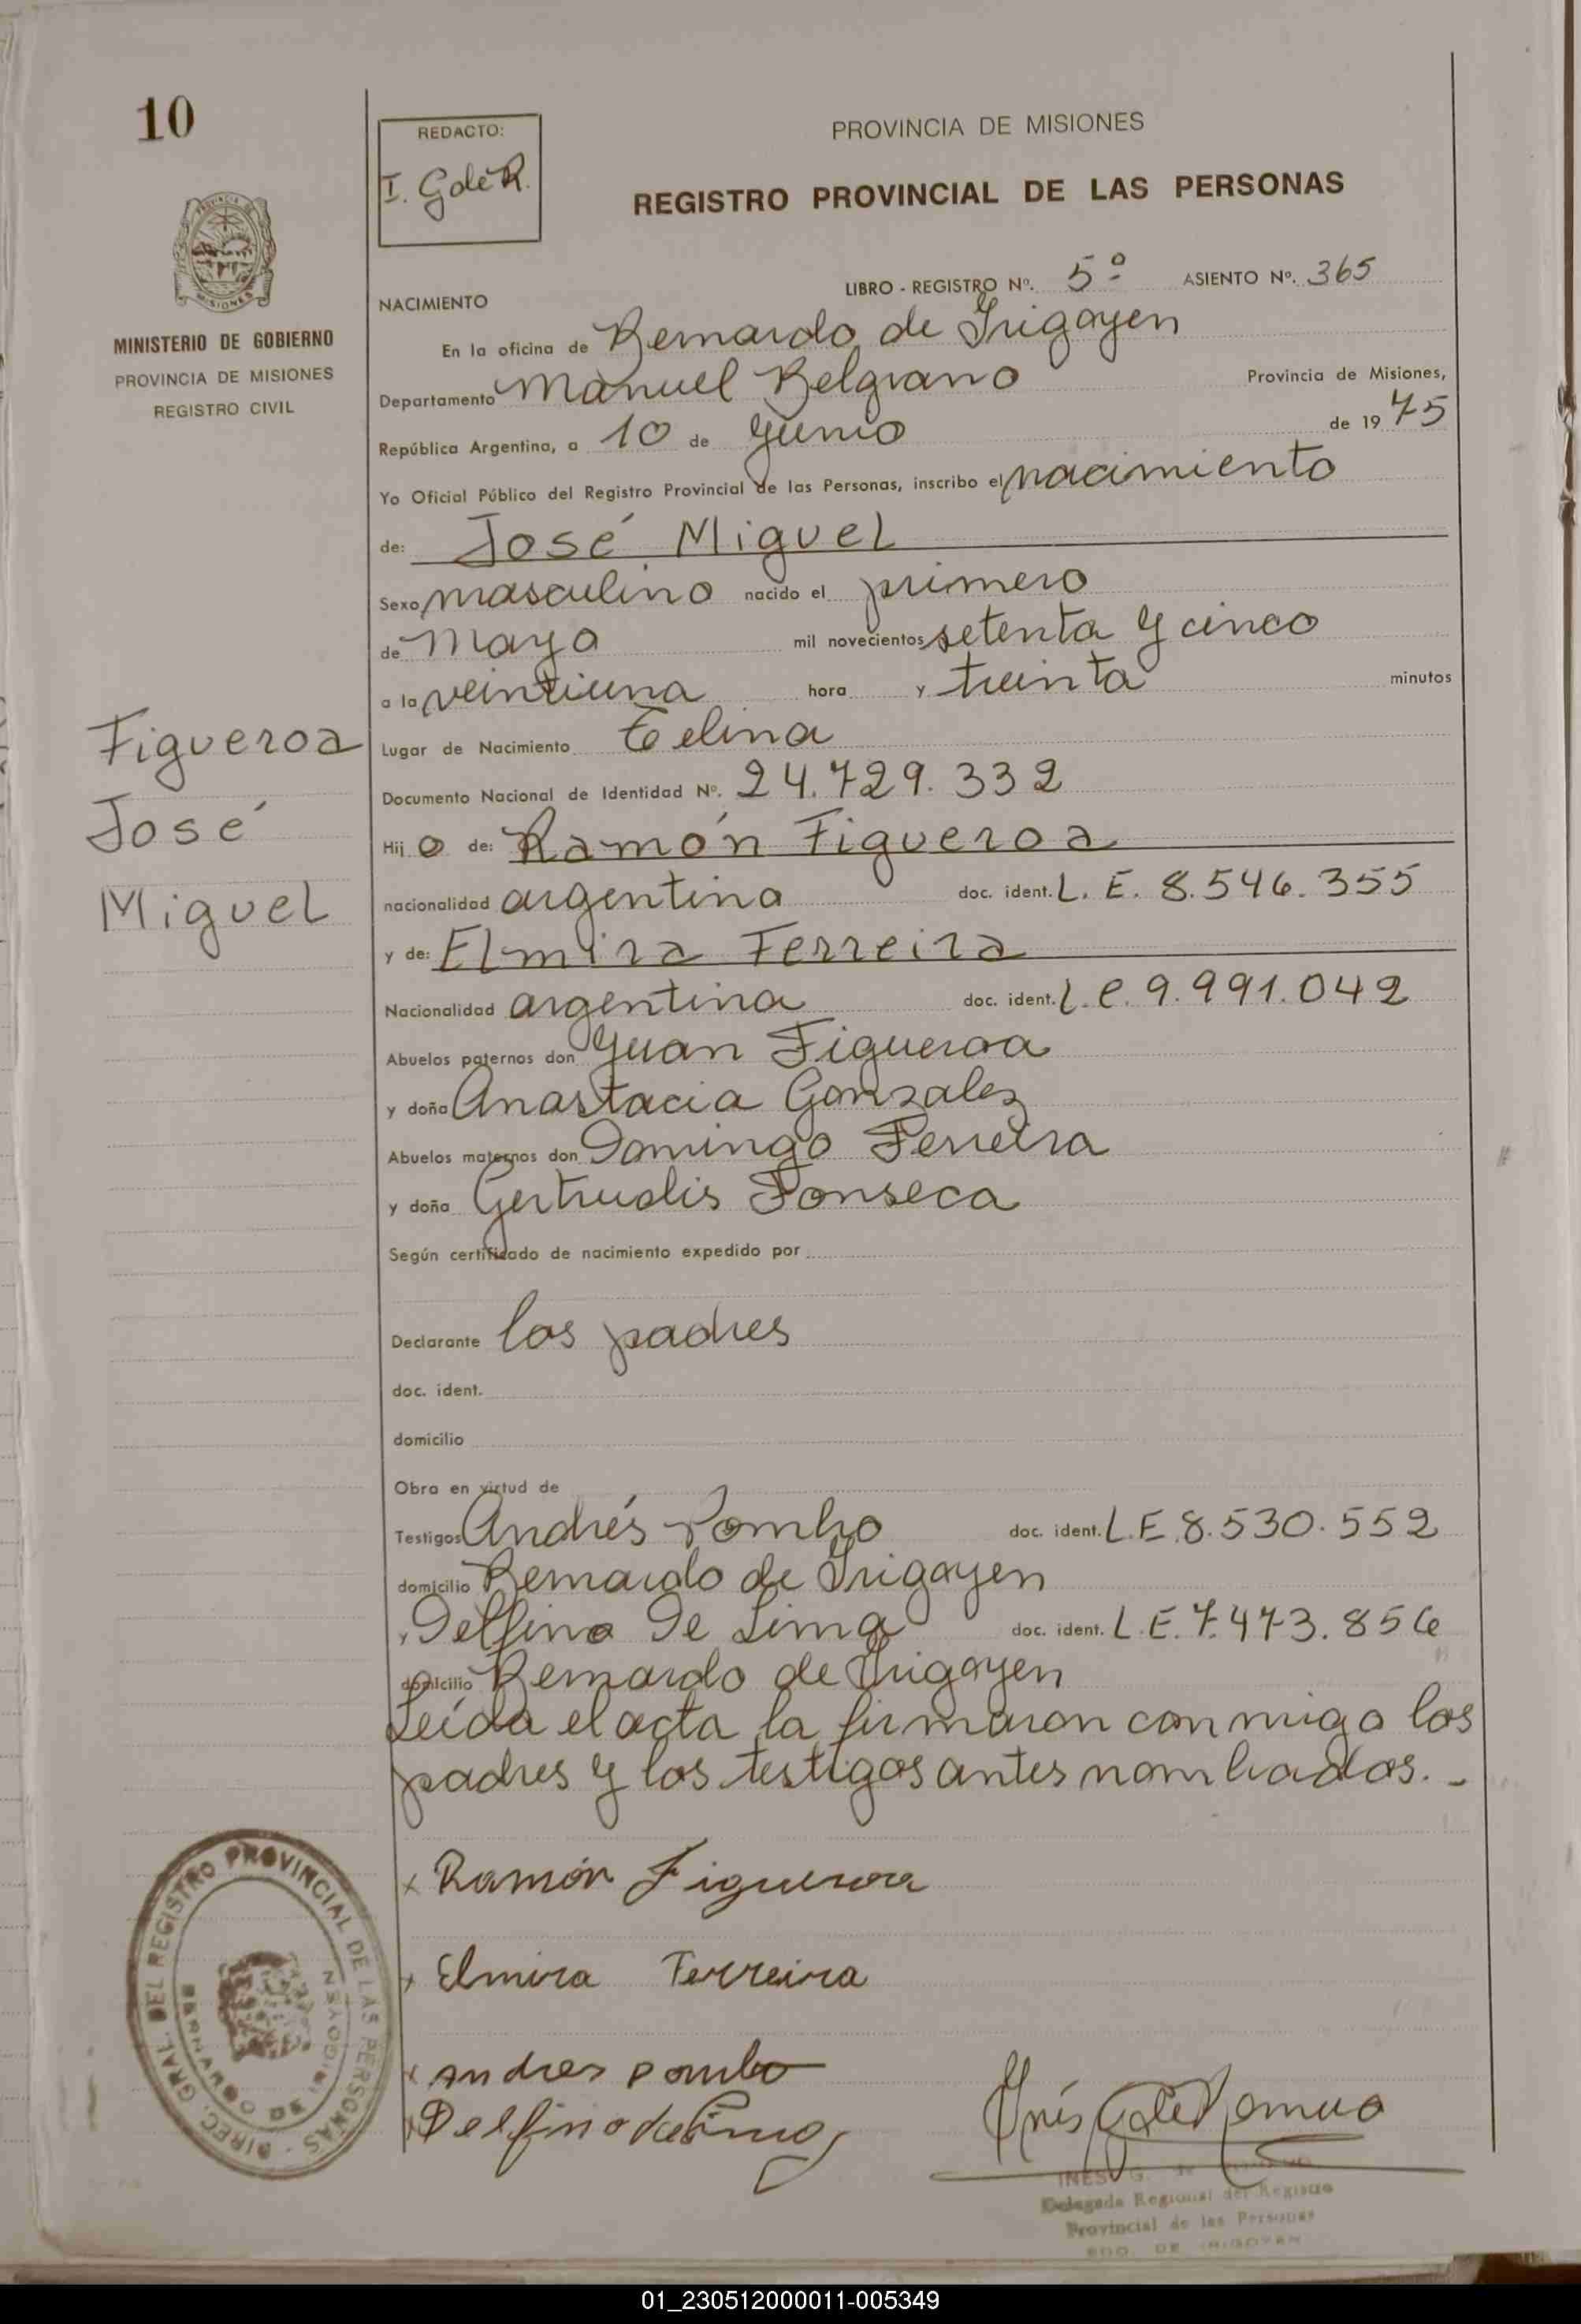 10
REDACTO:
I. G de R.
PROVINCIA DE MISIONES
REGISTRO PROVINCIAL DE LAS PERSONAS
MISIONES
MINISTERIO DE GOBIERNO
PROVINCIA DE MISIONES
REGISTRO CIVIL
LIBRO - REGISTRO Nº. 5º ASIENTO Nº. 365
NACIMIENTO
En la oficina de Bernardo de Irigoyen
Departamento Manuel Belgrano Provincia de Misiones,
República Argentina, a 10 de Junio de 19 75
Yo Oficial Público del Registro Provincial de las Personas, inscribo el nacimiento
de: José Miguel
Sexo masculino nacido el primero
de Mayo mil novecientos setenta y cinco
a la veintiuna hora y treinta minutos
Figueroa
José
Miguel
Lugar de Nacimiento
Documento Nacional de Identidad Nº. 24.729.332
Hij o de: Ramón Figueroa
nacionalidad argentina doc. ident. L. E. 8.546.355
y de: Elmira Ferreira
Nacionalidad argentina doc. ident. L.C. 9.991.042
Abuelos paternos don Juan Figueroa
y doña Anastacia Gonzalez
Abuelos maternos don Domingo Ferreira
y doña Gertrudis Fonseca
Según certificado de nacimiento expedido por
Declarante los padres
doc. ident.
domicilio
Obra en virtud de
Testigos Andrés Pombo doc. ident. L.E. 8.530.552
domicilio Bernardo de Irigoyen
y Delfino De Lima doc. ident. L.E. 7.473.856
domicilio Bernardo de Irigoyen
Leída el acta la firmaron conmigo los
padres y los testigos antes nombrados.-
x Ramón Figueroa
x Elmira Ferreira
x Andres Pombo
x Delfino de Lima
Inés G de Romero
DIREC. GRAL. DEL REGISTRO PROVINCIAL DE LAS PERSONAS
BERNARDO DE IRIGOYEN
INES G. de
Delegada Regional del Registro
Provincial de las Personas
BDO. DE IRIGOYEN
01_230512000011-005349